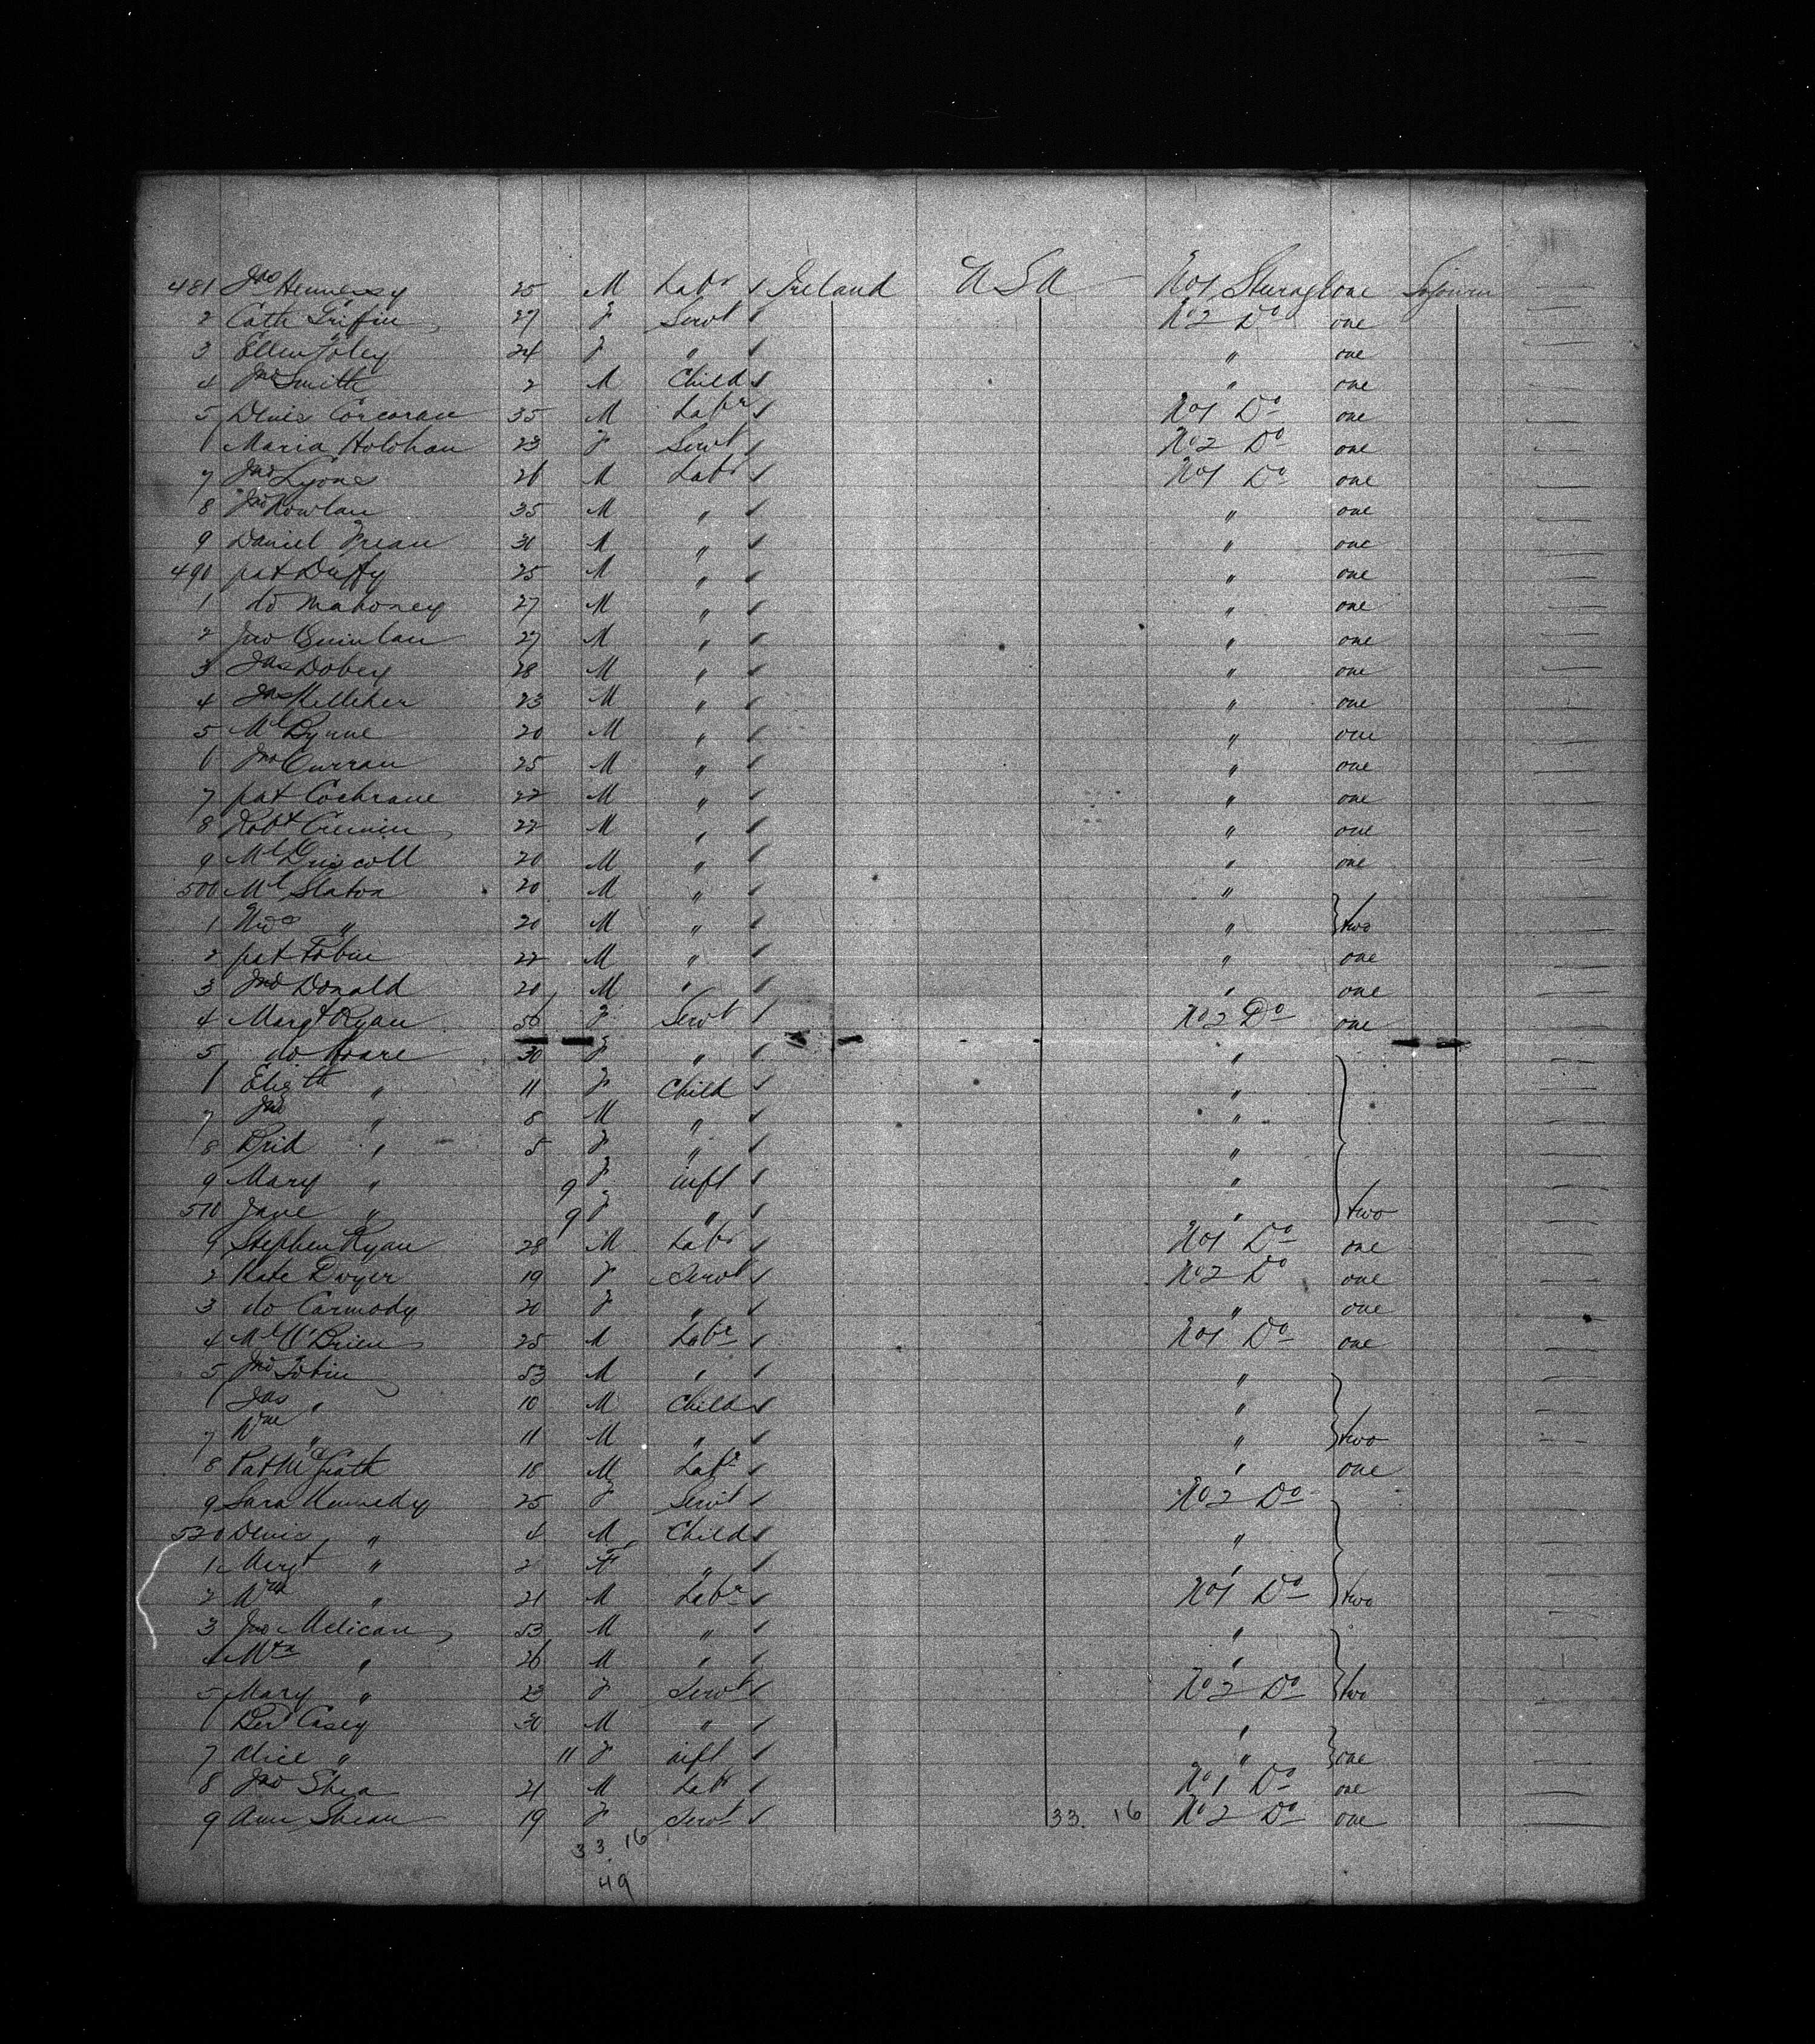 481 Jas Hennessy 25 M Labr ✓ Ireland USA No 1 Steerage one Sojourn
2 Cath Griffin 27 F Servt ✓ No 2 Do one
3 Ellen Foley 24 F " ✓ " one
4 Jno Smith 2 M Child ✓ " one
5 Denis Corcoran 35 M Labr ✓ No 1 Do one
6 Maria Holohan 23 F Servt ✓ No 2 Do one
7 Jno Lyons 26 M Labr ✓ No 1 Do one
8 Jno Rowlan 35 M " ✓ " one
9 Daniel 30 M " ✓ " one
490 pat Duffy 25 M " ✓ " one
1 do Mahoney 27 M " ✓ " one
2 Jno Quinlan 27 M " ✓ " one
3 Jas Dobey 28 M " ✓ " one
4 Jas Kelliher 23 M " ✓ " one
5 Ml Byrne 20 M " ✓ " one
6 Jno Curran 25 M " ✓ " one
7 pat Cochrane 22 M " ✓ " one
8 Robt Cremin 22 M " ✓ " one
9 Ml Driscoll 20 M " ✓ " one
500 Ml Slaton 20 M " ✓ "
1 " 20 M " ✓ " two
2 pat Tobin 22 M " ✓ " one
3 Jno Donald 20 M " ✓ " one
4 Margt Ryan 56 F Servt ✓ No 2 Do one
5 do Hoare 30 F " ✓ "
6 Elizth " 11 F Child ✓ "
7 Jno " 8 M " ✓ "
8 Brid " 5 F " ✓ "
9 Mary " 9 F inft ✓ "
510 Jane " 9 F " ✓ " two
1 Stephen Ryan 28 M Labr ✓ No 1 Do one
2 Kate Dwyer 19 F Servt ✓ No 2 Do one
3 do Carmody 20 F " ✓ " one
4 Ml O'Brien 25 M Labr ✓ No 1 Do one
5 Jno Tobin 53 M " ✓ "
6 Jas " 10 M Child ✓ "
7 Wm " 11 M " ✓ " two
8 Pat McGrath 18 M Labr ✓ " one
9 Sara Kennedy 25 F Servt ✓ No 2 Do
520 Denis " 4 M Child ✓ "
1 Margt " 2 F " ✓ "
2 Wm " 21 M Labr ✓ No 1 Do two
3 Jno Melican 53 M " ✓ "
4 " 26 M " ✓ "
5 Mary " 23 F Servt ✓ No 2 Do two
6 Casey 30 M " ✓ "
7 Alice " 11 F inft ✓ " one
8 Jno Shea 21 M Labr ✓ No 1 Do one
9 Ann Shean 19 F Servt ✓ 33. 16 No 2 Do one
33. 16
49